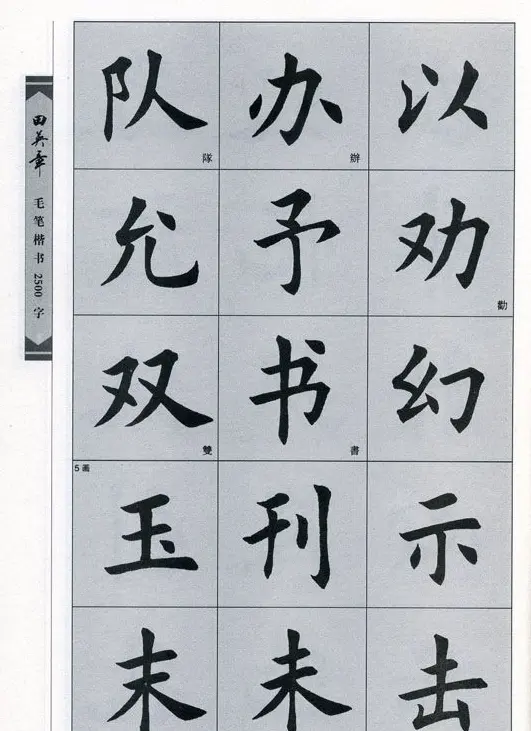 田英章
毛笔楷书2500字
队 办 以
隊 辦
允 予 劝
勸
双 书 幻
雙 書
5画
玉 刊 示
末 未 击